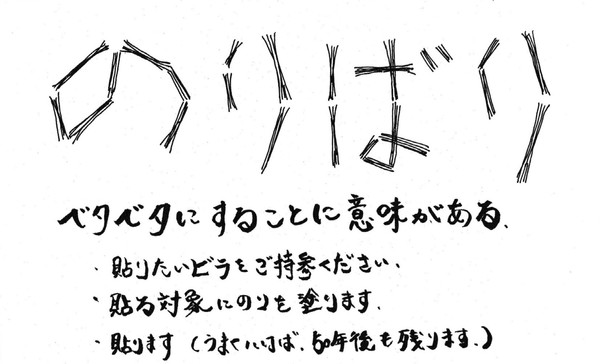 のりばり
ベタベタにすることに意味がある、
・貼りたいビラをご持参ください、
・貼る対象にのりを塗ります、
・貼ります(うまくいけば、50年後も残ります、)